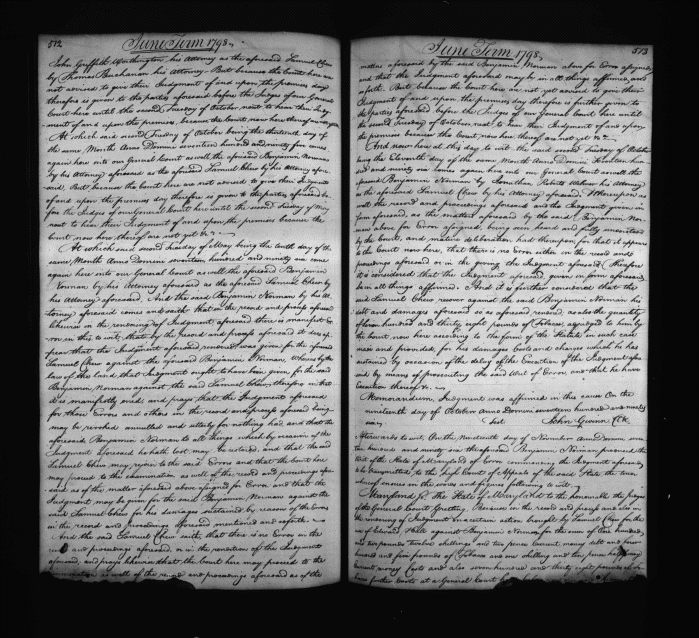 512
June Term 1798
John Griffith Worthington, his attorney as the aforesaid Samuel Chew
by Thomas Buchanan his attorney. But because the Court here are
not advised to give their Judgment of and upon the premises day
therefore is given to the parties aforesaid before the Judges of our General
Court here until the second Tuesday of October next to hear their Judg-
ment of and upon the premises because the Court now here thereof are not yet
At which said second Tuesday of October being the thirteenth day of
the same Month Anno Domini seventeen hundred and ninety five comes
again here into our General Court as well the aforesaid Benjamin Norman
by his Attorney aforesaid as the aforesaid Samuel Chew by his Attorney afore-
said. But because the Court here are not advised to give their Judgment
of and upon the premises day therefore is given to the parties aforesaid be-
fore the Judges of our General Court here until the second Tuesday of May
next to hear their Judgment of and upon the premises because the
Court now here thereof are not yet &c.
At which said second Tuesday of May being the tenth day of the
same Month Anno Domini seventeen hundred and ninety six came
again here into our General Court as well the aforesaid Benjamin
Norman by his Attorney aforesaid as the aforesaid Samuel Chew by
his Attorney aforesaid. And the said Benjamin Norman by his At-
torney aforesaid comes and saith that in the record and process aforesaid
likewise in the rendering of Judgment aforesaid there is manifest Er-
ror in this to wit, that by the record and process aforesaid it does ap-
pear that the Judgment aforesaid rendered was given for the aforesaid
Samuel Chew against the aforesaid Benjamin Norman, whereas by the
law of the land that Judgment ought to have been given for the said
Benjamin Norman against the said Samuel Chew, therefore in that
it is manifestly erred, and prays that the Judgment aforesaid
for those Errors and others in the record and process aforesaid being
may be revoked annulled and utterly for nothing had, and that the
aforesaid Benjamin Norman to all things which by occasion of the
Judgment aforesaid he hath lost may be restored, and that the said
Samuel Chew may rejoin to the said Errors and that the Court here
may proceed to the examination as well of the record and proceedings afore-
said as of the matter aforesaid above assigned for Error, and that the
Judgment may be given for the said Benjamin Norman against the
said Samuel Chew for his damages sustained by reason of the Errors
in the record and proceedings aforesaid mentioned and set forth.
And the said Samuel Chew saith, that there is no Error in the
record and proceedings aforesaid, or in the rendition of the Judgment
aforesaid, and prays likewise that the Court here may proceed to the
examination as well of the record and proceedings aforesaid as of the
June Term 1798
513
matters aforesaid by the said Benjamin Norman above for Error assigned
and that the Judgment aforesaid may be in all things affirmed, and
forth. But because the Court here are not yet advised to give their
Judgment of and upon the premises day therefore is further given to
the parties aforesaid before the Judges of our General Court here until
the second Tuesday of October next to hear their Judgment of and upon
the premises because the Court now here thereof are not yet &c.
And now here at this day to wit the said second Tuesday of October
being the Eleventh day of the same Month Anno Domini seventeen hun-
dred and ninety six came again here into our General Court as well the
aforesaid Benjamin Norman by Jonathan Roberts Wilmer his Attorney
as the aforesaid Samuel Chew by his Attorney aforesaid. Whereupon
as well the record and proceedings aforesaid and the Judgment given in
form aforesaid, as the matters aforesaid by the said Benjamin Nor-
man above for Error assigned, being seen heard and fully understood
by the Court, and mature deliberation had thereupon for that it appears
to the Court now here, that there is no Error either in the record and
proceedings aforesaid or in the giving the Judgment aforesaid. Therefore
it is considered that the Judgment aforesaid given in form aforesaid,
be in all things affirmed. And it is further considered that the
said Samuel Chew recover against the said Benjamin Norman his
debt and damages aforesaid so as aforesaid rendered, as also the quantity
of seven hundred and thirty eight pounds of Tobacco, adjudged to him by
the Court now here according to the form of the Statute in such case
made and provided for his damages Costs and charges which he has
sustained by occasion of the delay of the Execution of the Judgment afore-
said by means of prosecuting the said Writ of Error, and that he have
Execution thereof &c.
Memorandum, Judgment was affirmed in this cause On the
nineteenth day of October Anno Domini seventeen hundred and ninety
six.
Test
John Gwinn Clk
Afterwards to wit On the Nineteenth day of November Anno Domini seven-
teen hundred and ninety six the aforesaid Benjamin Norman produced the
Writ of the State of Maryland of Error commencing the Judgment aforesaid
to be transmitted to the high Court of Appeals of the said State the tenor
whereof ensues in the words and figures following to wit
Maryland Sc. The State of Maryland to the honourable the Judges
of the General Court Greeting, Because in the record and process and also in
the rendering of Judgment in a certain action brought by Samuel Chew for the
use of Edward Hall against Benjamin Norman for the sum of three hundred